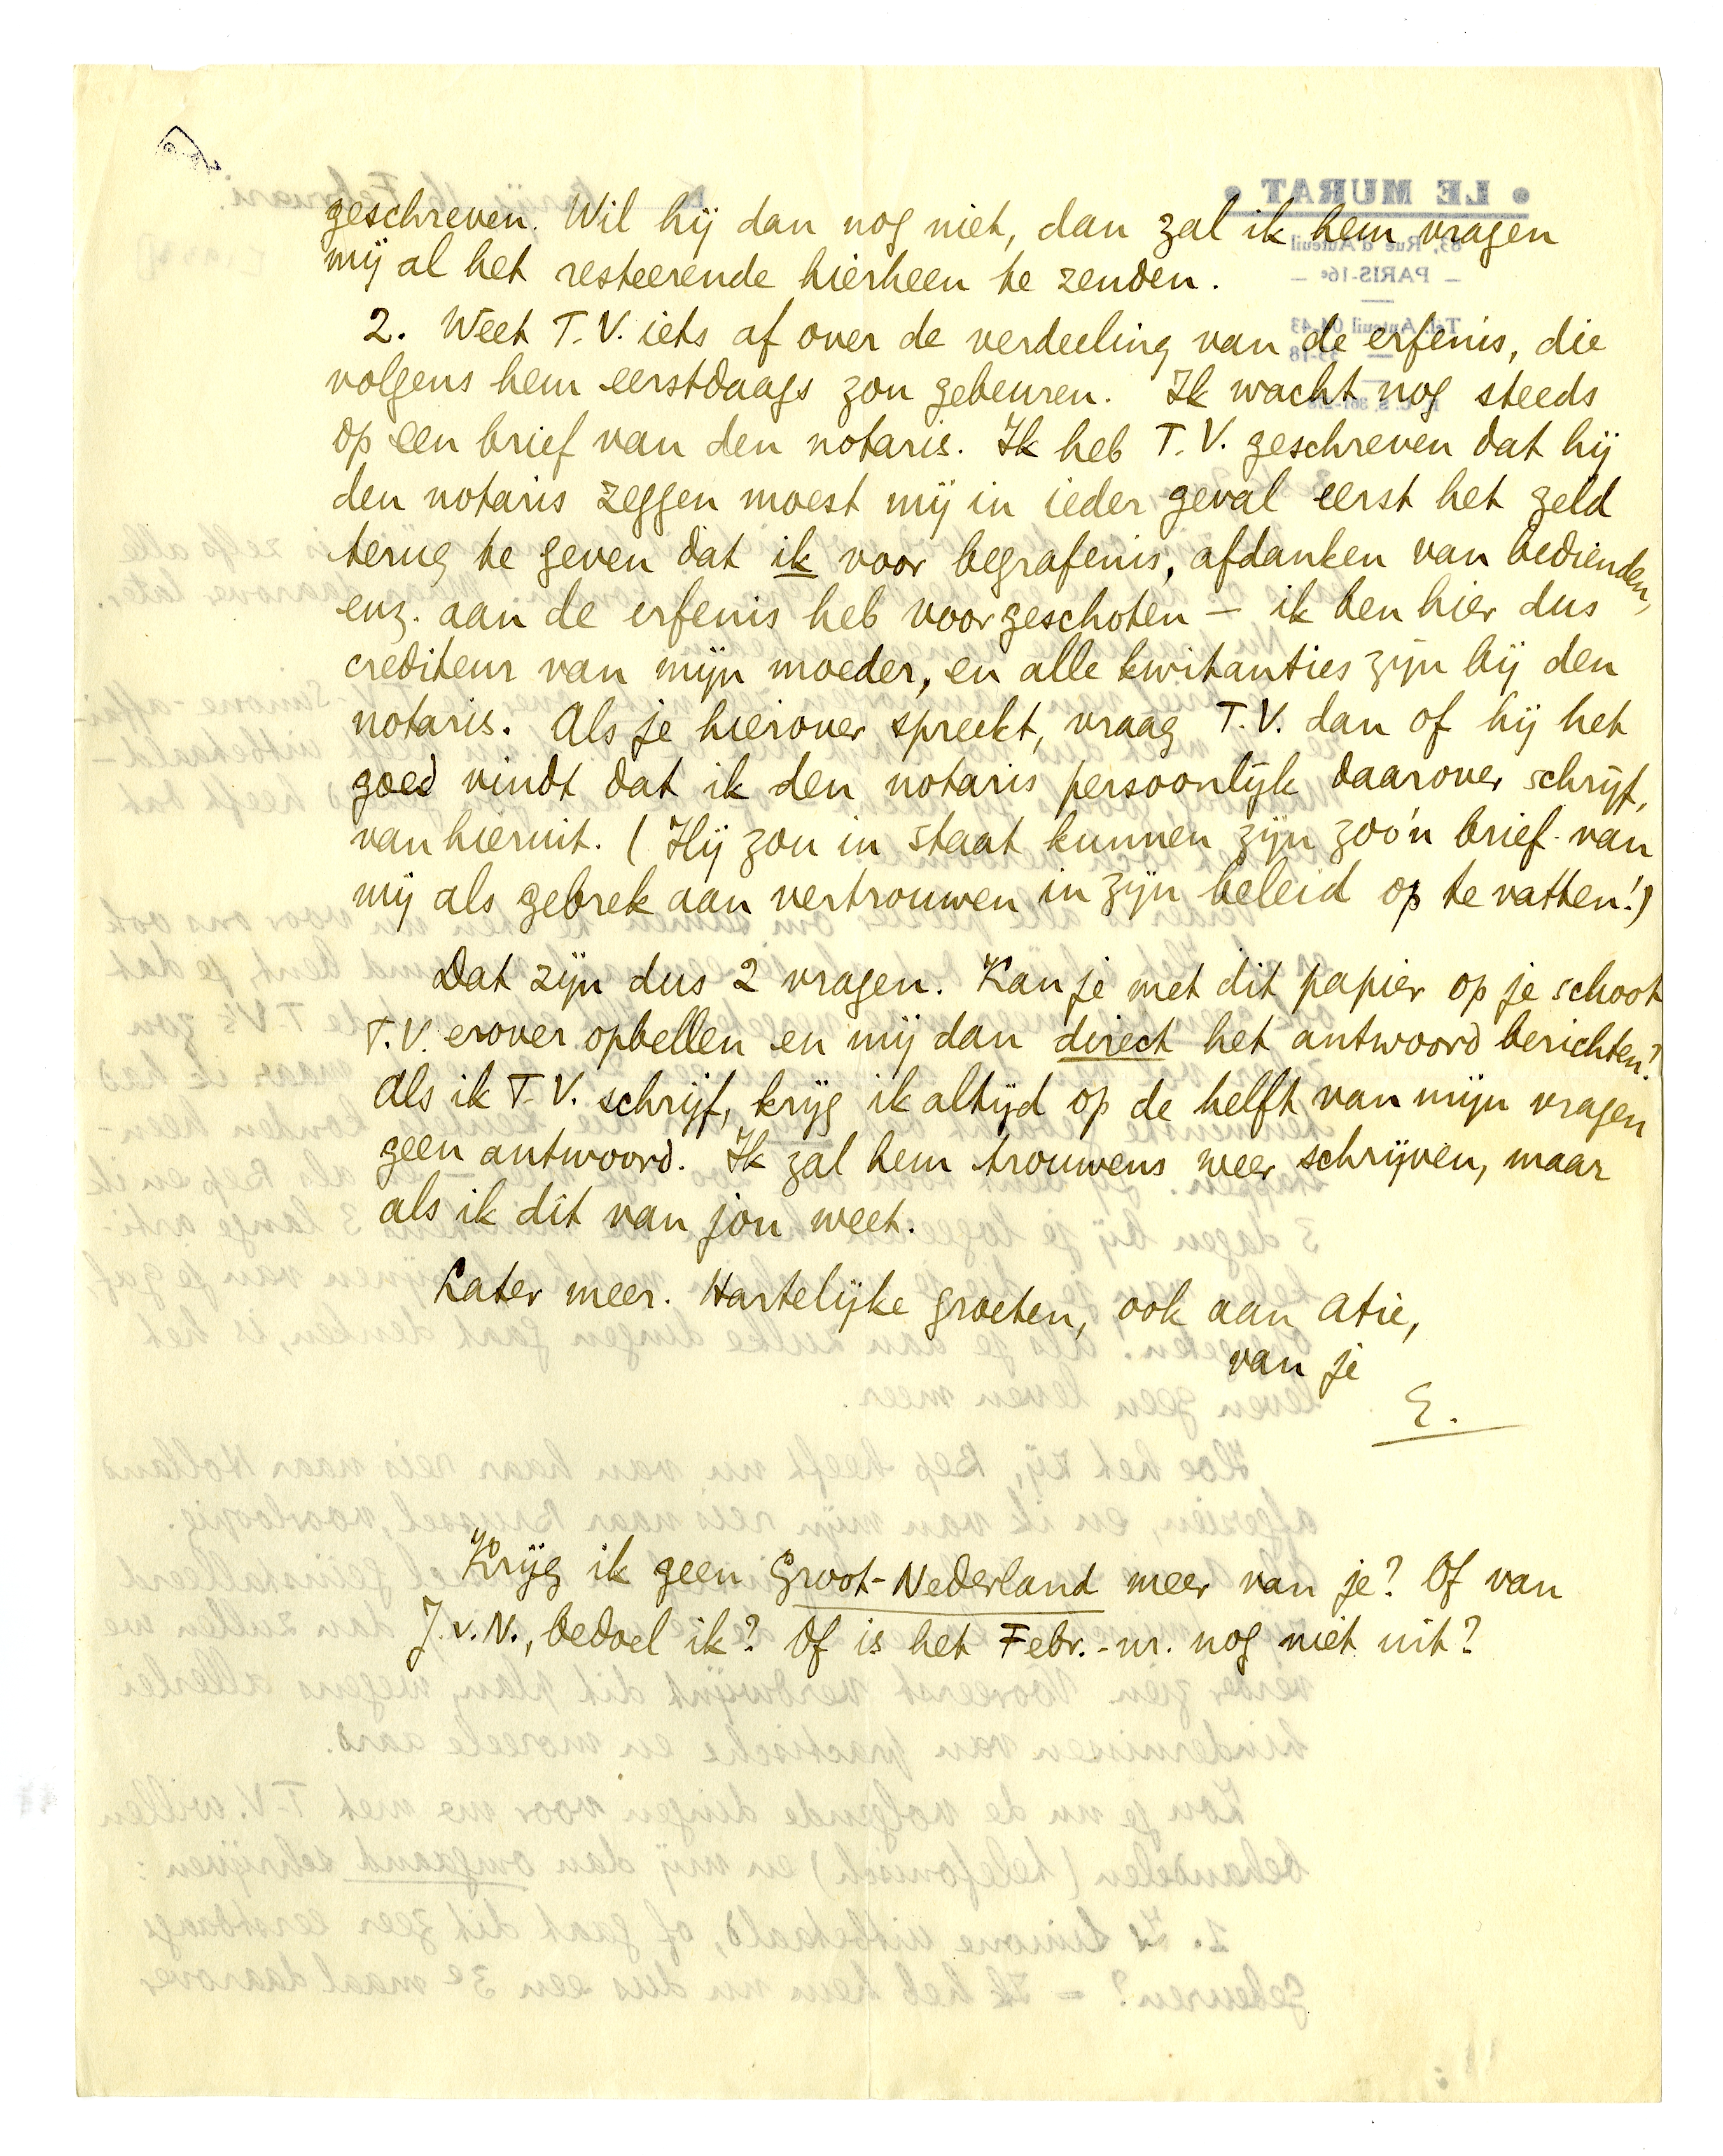 geschreven. Wil hij dan nog niet, dan zal ik hem vragen
mij al het resteerende hierheen te zenden.
2. Weet T.V. iets af over de verdeeling van de erfenis, die
volgens hem eerstdaags zou gebeuren. Ik wacht nog steeds
op een brief van den notaris. Ik heb T.V. geschreven dat hij
den notaris zeggen moest mij in ieder geval eerst het geld
terug te geven dat ik voor begrafenis, afdanken van bedienden,
enz. aan de erfenis heb voorgeschoten – ik ben hier dus
crediteur van mijn moeder, en alle kwitanties zijn bij den
notaris. Als je hierover spreekt, vraag T.V. dan of hij het
goed vindt dat ik den notaris persoonlijk daarover schrijf,
van hieruit. (Hij zou in staat kunnen zijn zoo'n brief van
mij als gebrek aan vertrouwen in zijn beleid op te vatten!)
Dat zijn dus 2 vragen. Kan je met dit papier op je schoot
T.V. erover opbellen en mij dan direct het antwoord berichten?
Als ik T.V. schrijf, krijg ik altijd op de helft van mijn vragen
geen antwoord. Ik zal hem trouwens weer schrijven, maar
als ik dit van jou weet.
Later meer. Hartelijke groeten, ook aan Atie,
van je
E.
Krijg ik geen Groot-Nederland meer van je? Of van
J.v.N., bedoel ik? Of is het Febr.-nr. nog niet uit?